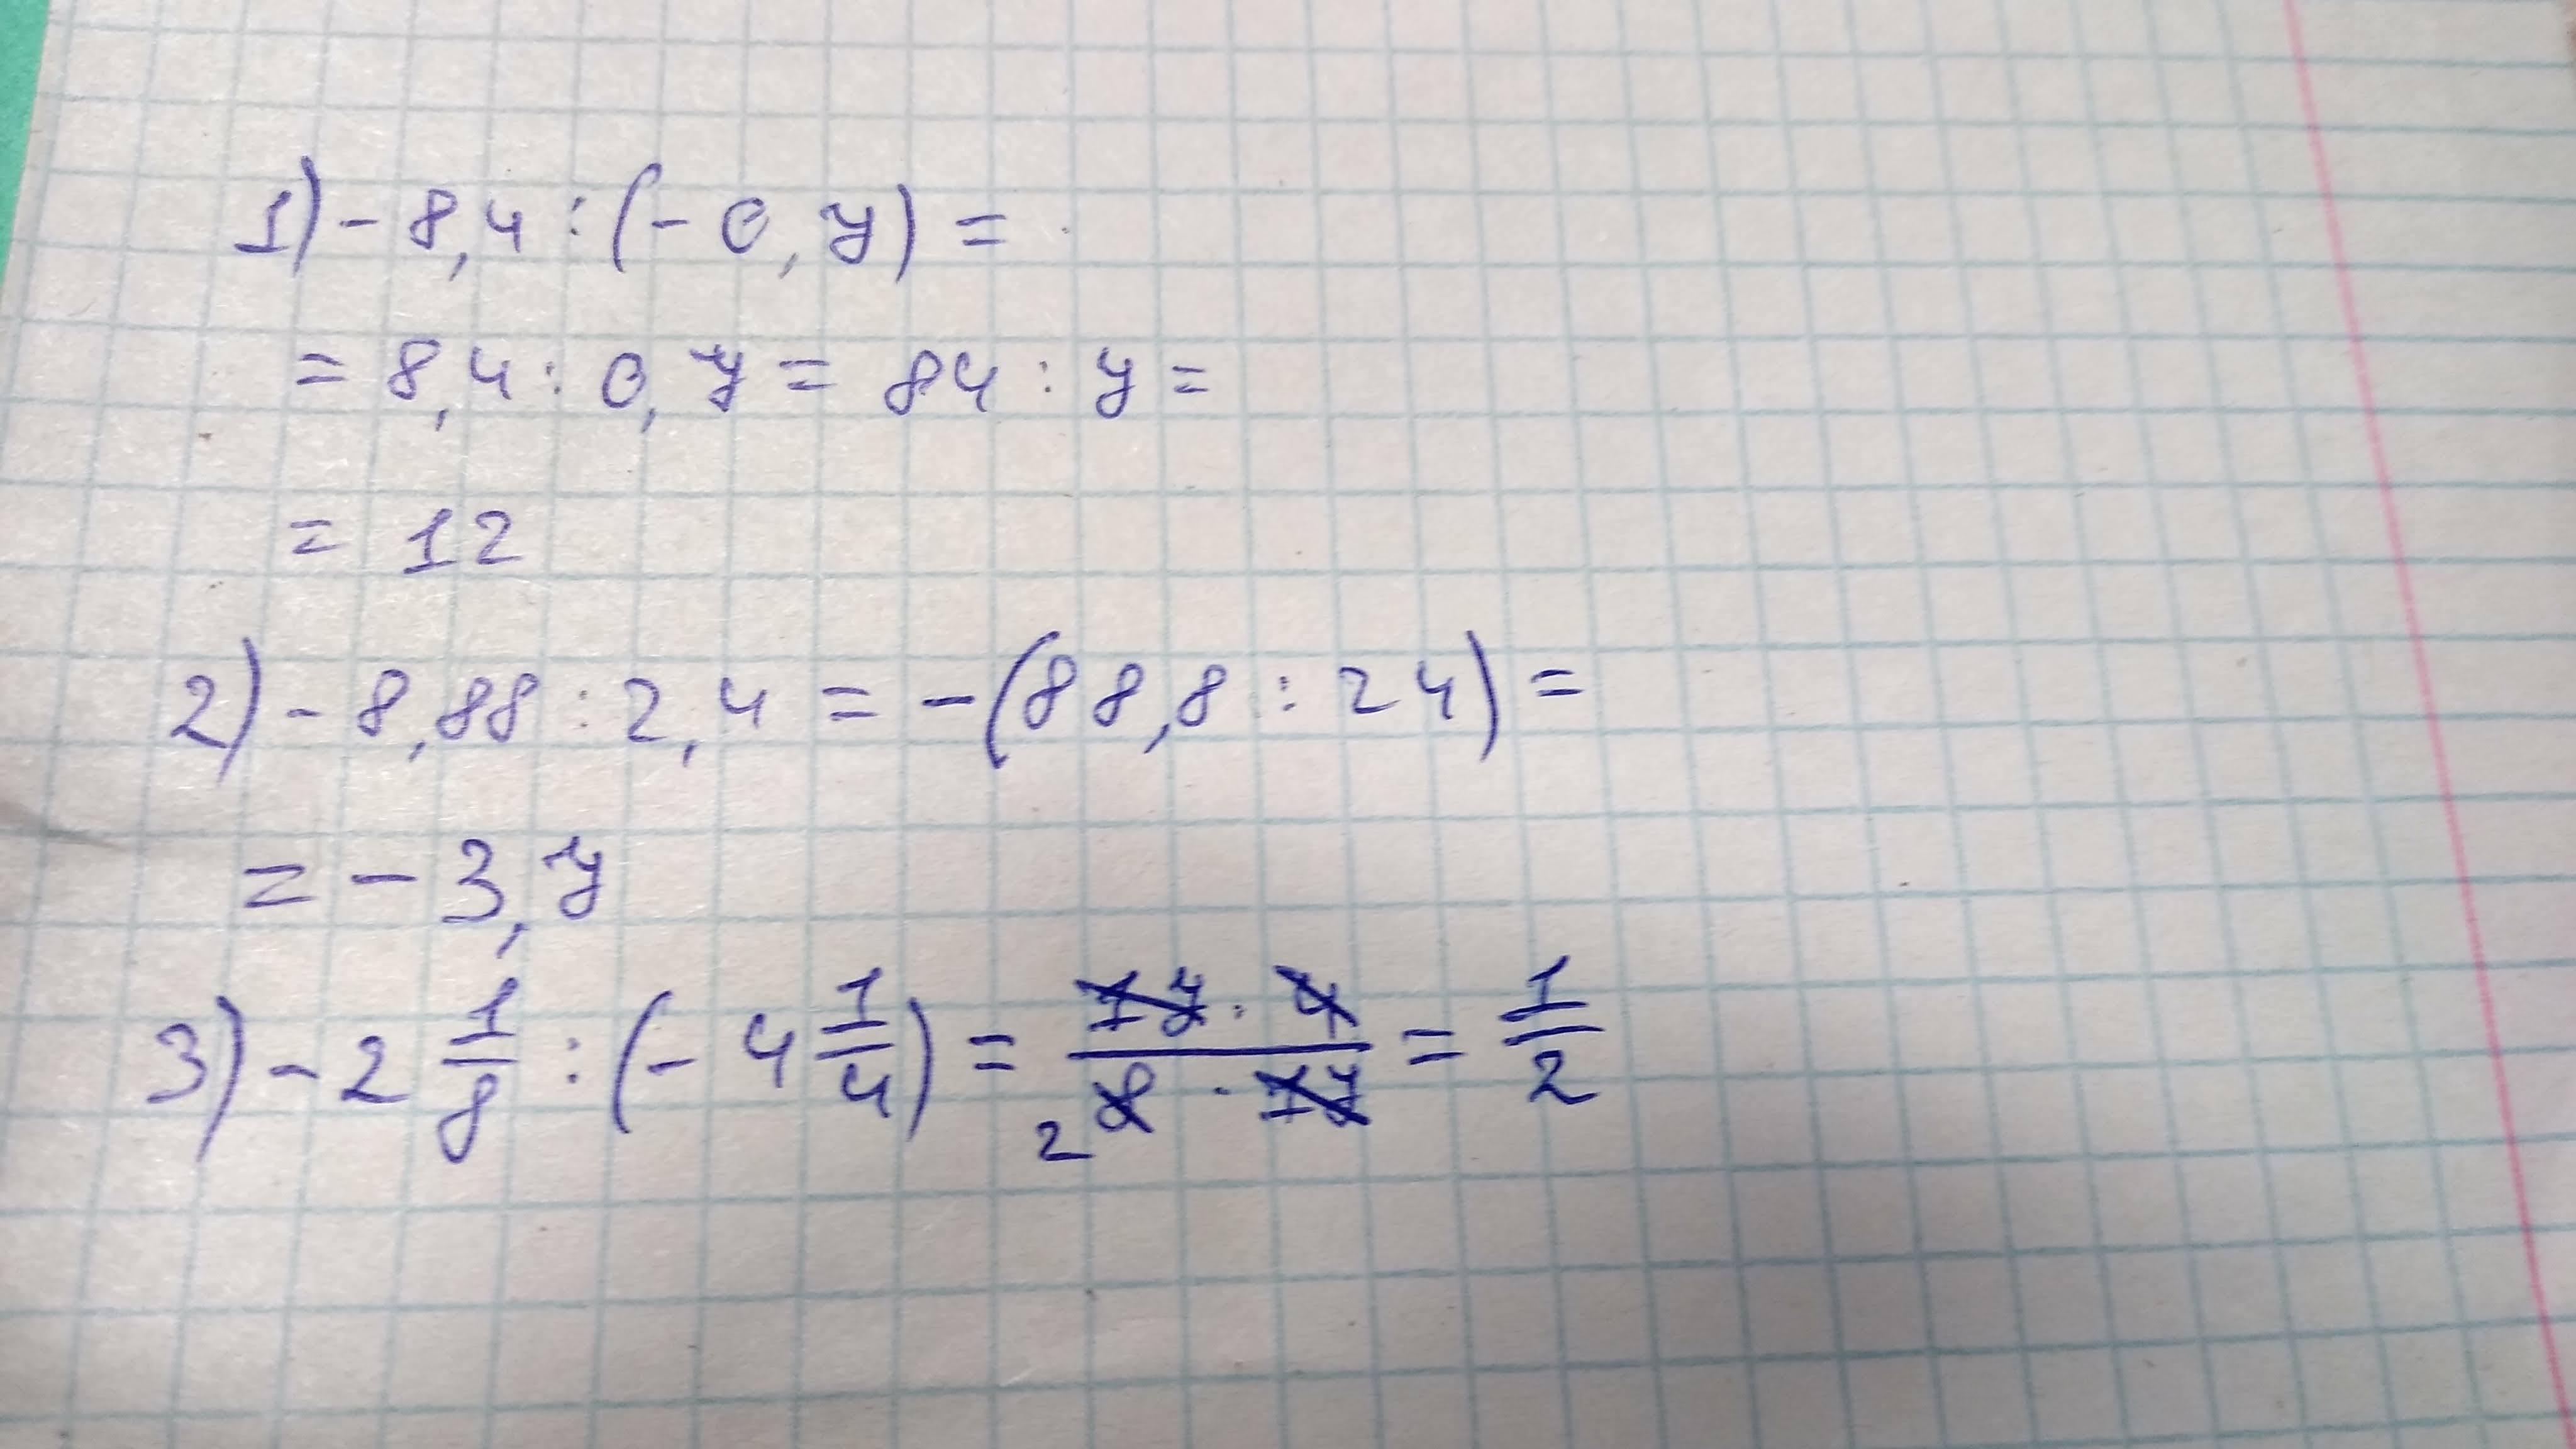 1) - 8,4 : (- 0,7) =
= 8,4 : 0,7 = 84 : 7 =
= 12
2) - 8,88 : 2,4 = - (88,8 : 24) =
= - 3,7
3) - 2 1/8 : (- 4 1/4) = 17 · 4 / 2 8 · 17 = 1/2